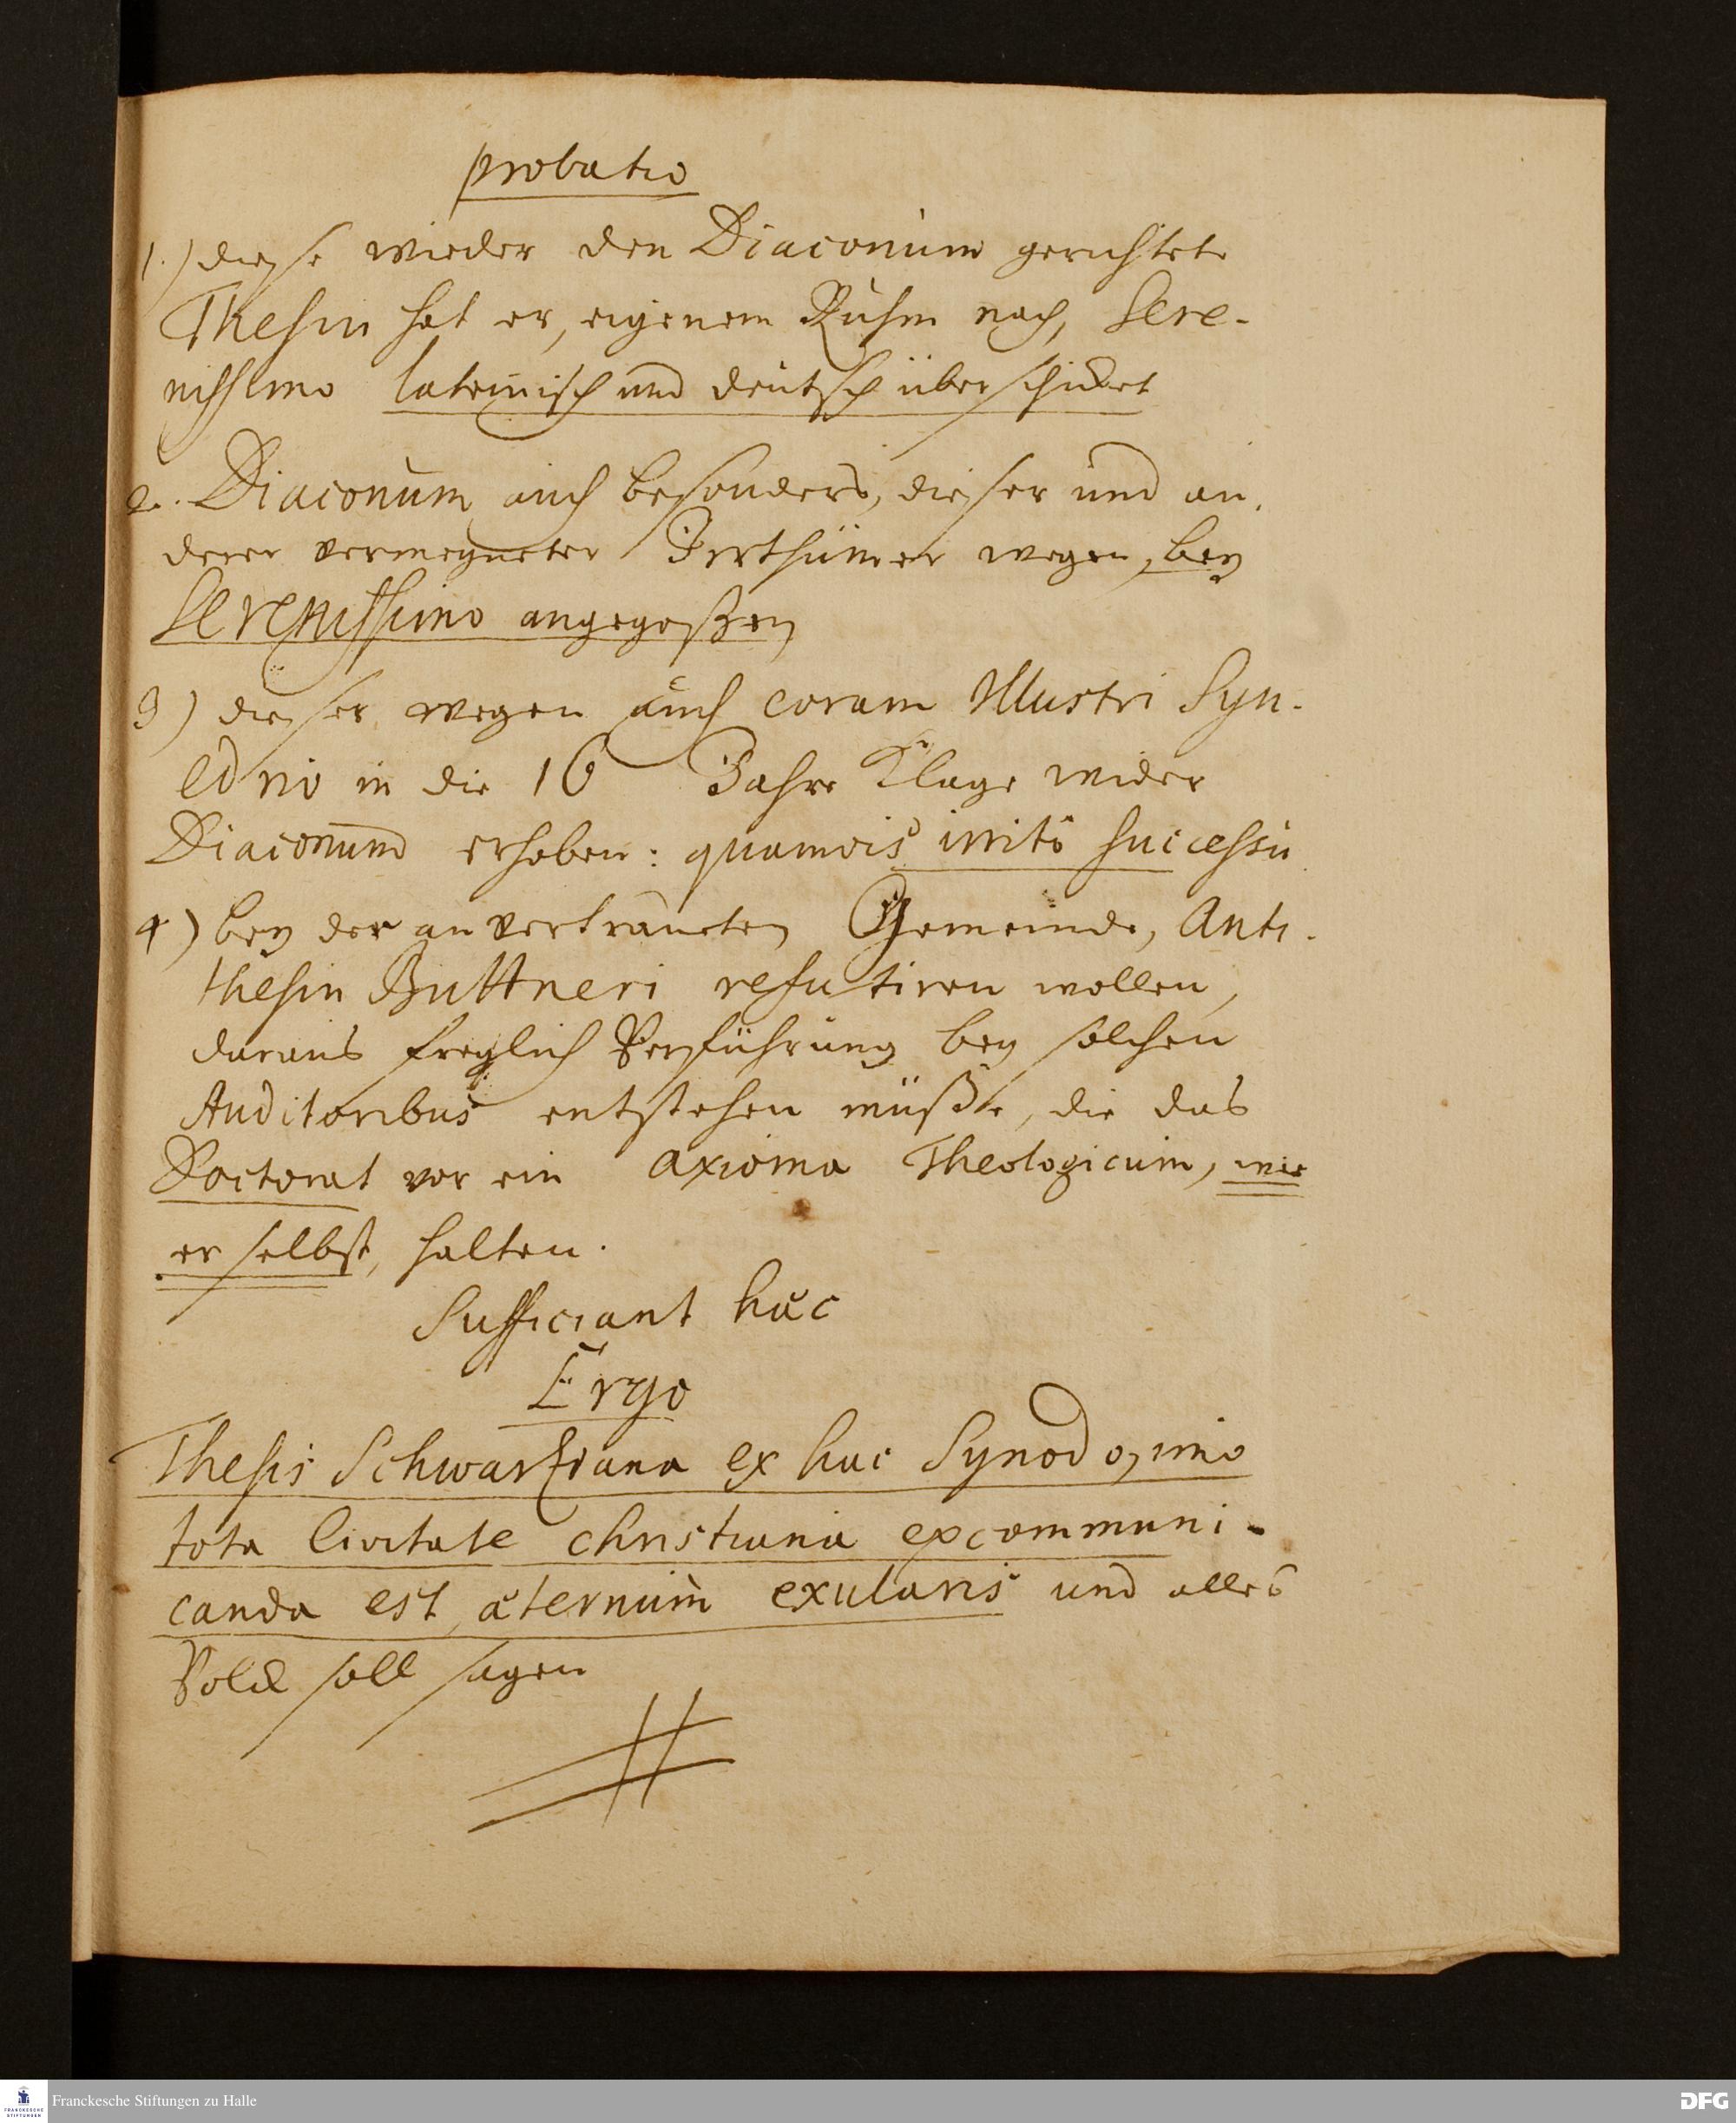 probatio
1.) diese wieder den Diaconum gerichtete
Thesin hat er, eigenem Ruhm nach, Sere-
nissimo lateinisch und deutsch überschicket
2. Diaconum auch besonders, dieser und an
derer vermeyneter Irrthümer wegen, bey
Serenissimo angegoßen
3) dieser wegen auch coram Illustri Syn-
edrio in die 16 Jahre Klage wider
Diaconum erhoben: quamvis irrito successu
4) bey der anvertraueten Gemeinde, Anti-
thesin Buttneri refutiren wollen,
daraus freylich Verführung bey solchen
Auditoribus entstehen müßte, die das
Doctorat vor ein axioma Theologicum, wie
er selbst, halten.
Sufficiant hæc
Ergo
Thesis Schwartziana ex hac Synodo, imo
tota Civitate christiana excommuni-
canda est, æternum exularis und alles
Volck soll sagen
Franckesche Stiftungen zu Halle
FRANCKESCHE
STIFTUNGEN
DFG